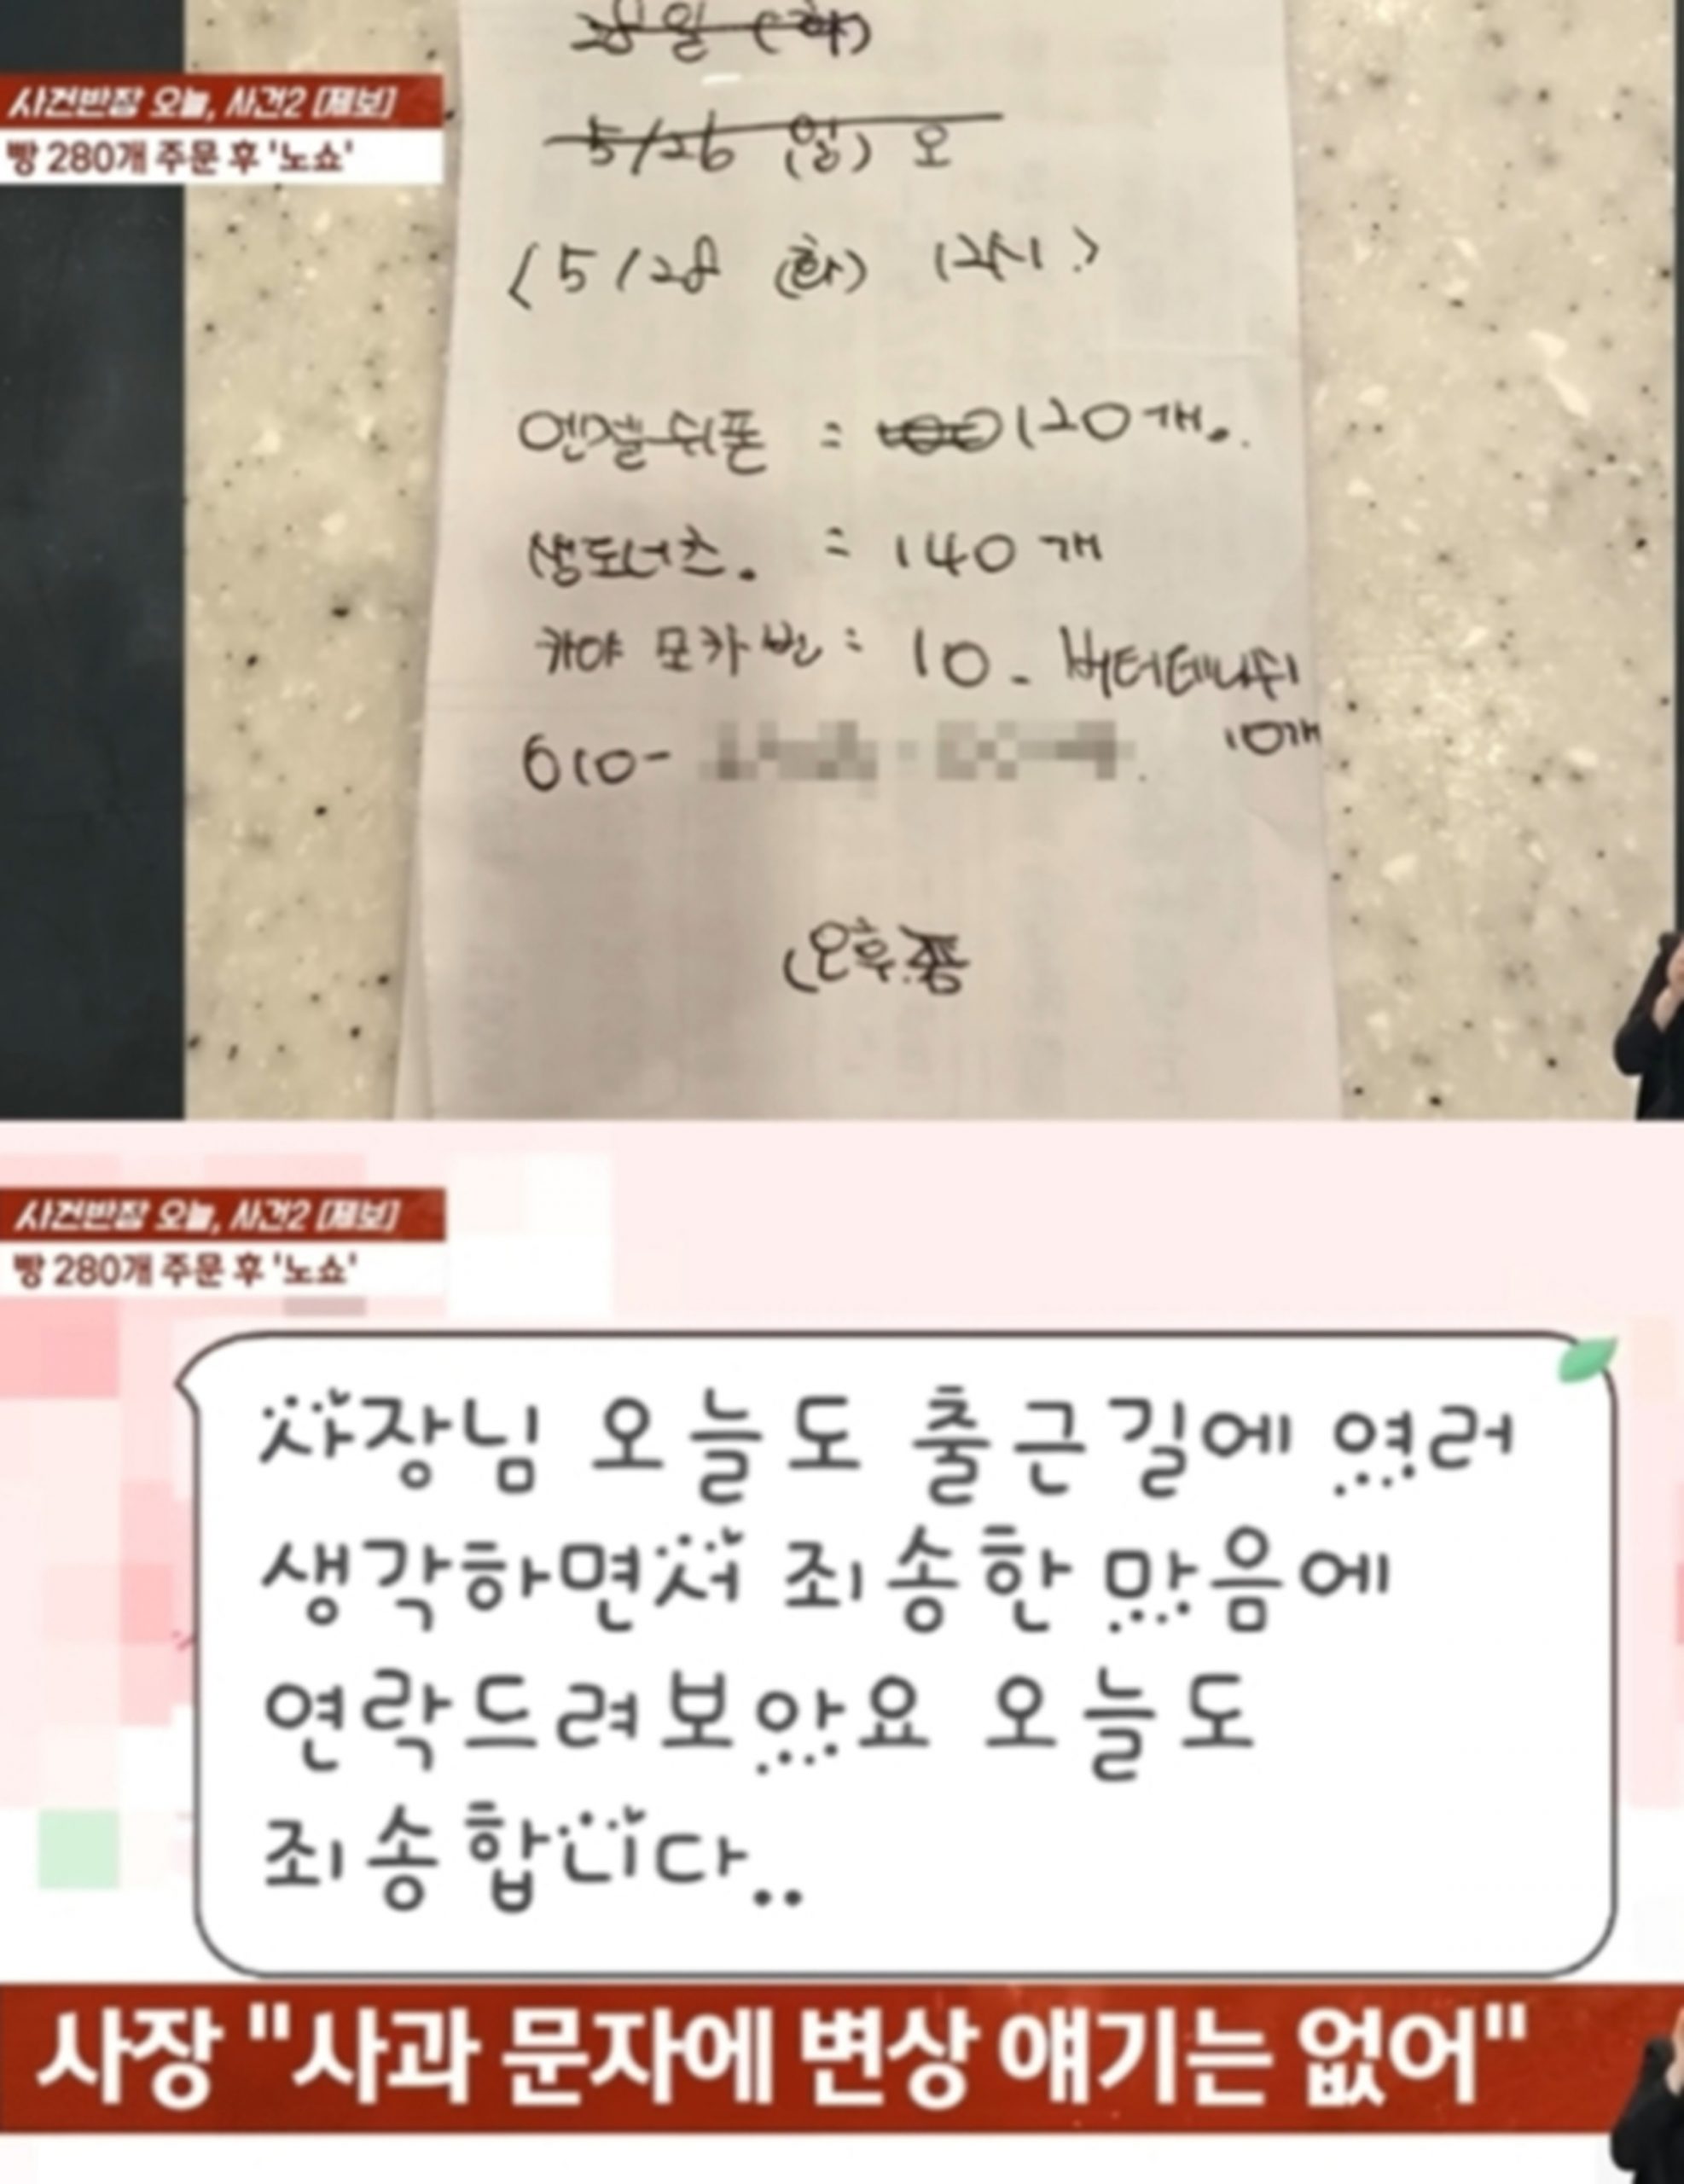 28일 (화)
사건반장 오늘, 사건2 [제보]
빵 280개 주문 후 '노쇼'
5/26 (일) 오
<5/28 (화) 12시.>
엔젤쉬폰 : 100 120개.
생도너츠. = 140개
카야 모카번 : 10 - 버터테나쉬
10개
010-
(오후쯤
사건반장 오늘, 사건2 [제보]
빵 280개 주문 후 '노쇼'
사장님 오늘도 출근길에 여러
생각하면서 죄송한 맘음에
연락드려보았요 오늘도
죄송합니다..
사장 "사과 문자에 변상 얘기는 없어"